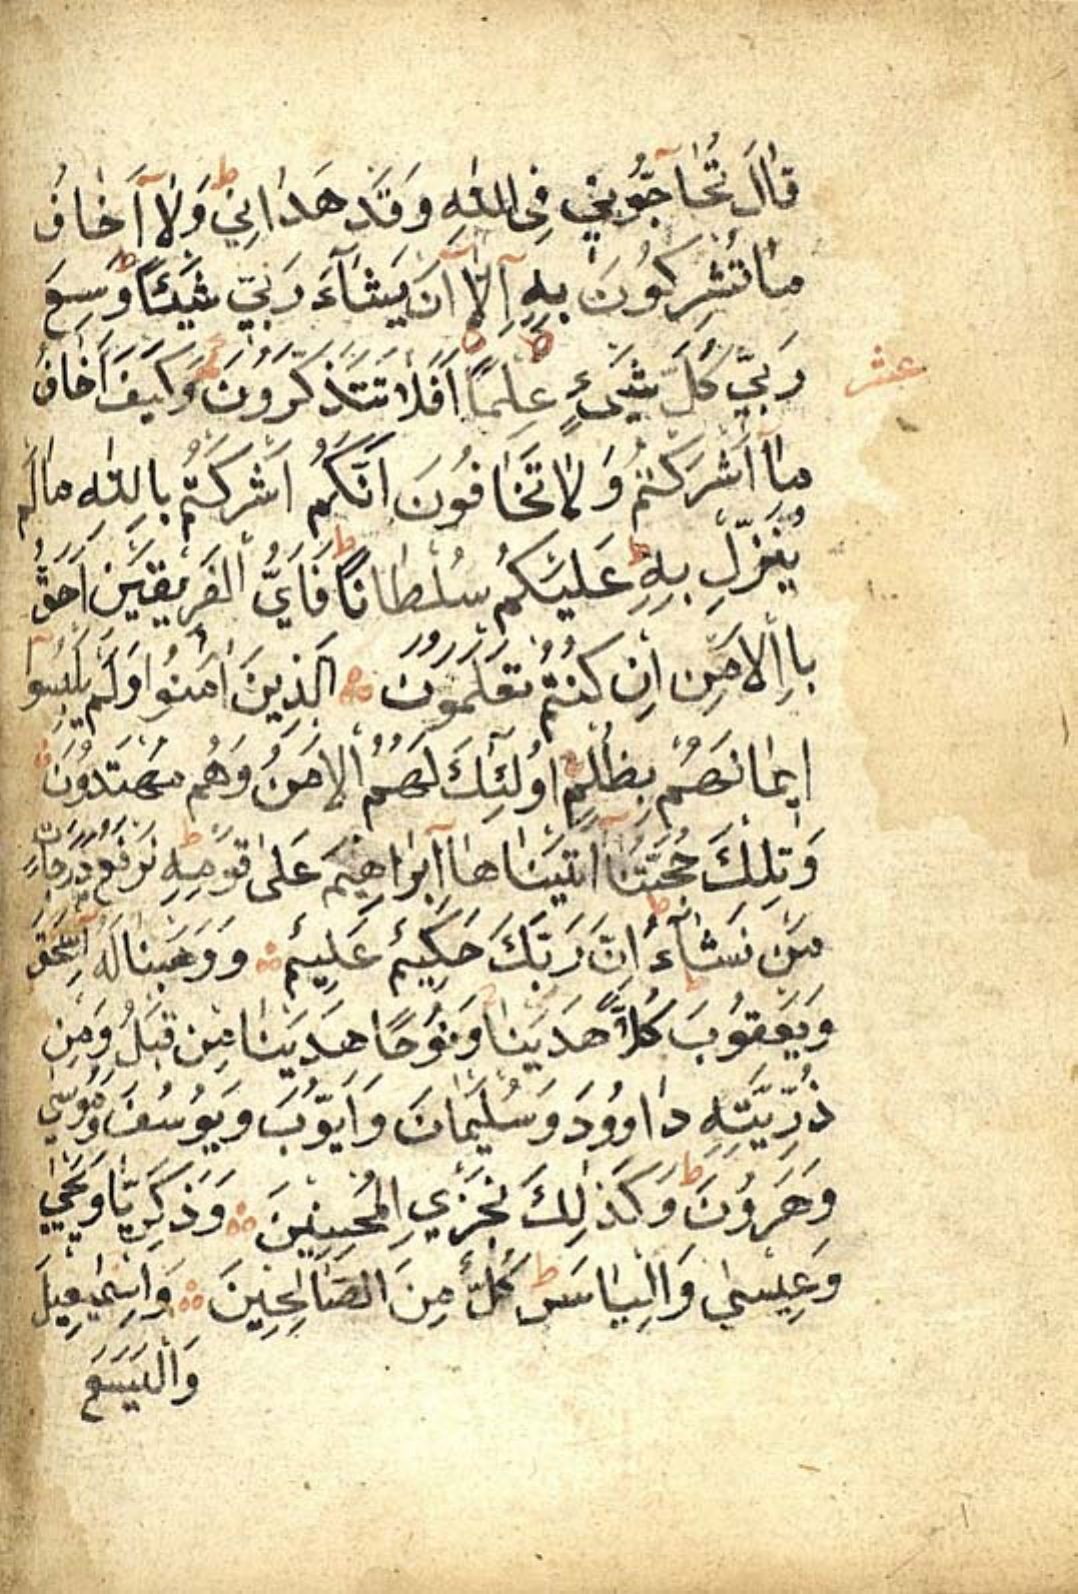 قَالَ تُحَآجُّوٓنِّي فِى اللّٰهِ وَقَدْ هَدٰانِيْ ط وَلَآ اَخَافُ
مَا تُشْرِكُونَ بِهِٓ اِلَّآ اَنْ يَشَآءَ رَبِّيْ شَيْئًا ط وَسِعَ
رَبِّيْ كُلَّ شَيْءٍ عِلْمًا اَفَلَا تَتَذَكَّرُونَ وَكَيْفَ اَخَافُ
عشر
مَآ اَشْرَكْتُمْ وَلَا تَخَافُونَ اَنَّكُمْ اَشْرَكْتُمْ بِاللّٰهِ مَا لَمْ
يُنَزِّلْ بِهِ عَلَيْكُمْ سُلْطَانًا ط فَاَيُّ الْفَرِيقَيْنِ اَحَقُّ
بِاالْاَمْنِ اِنْ كُنْتُمْ تَعْلَمُونَ الَّذِينَ اٰمَنُوا وَلَمْ يَلْبِسُوٓا
اِيمَانَهُمْ بِظُلْمٍ اُولٰٓئِكَ لَهُمُ الْاَمْنُ وَهُمْ مُهْتَدُونَ
وَتِلْكَ حُجَّتُنَآ اٰتَيْنَاهَآ اِبْرَاهِيمَ عَلٰى قَوْمِهِ ط نَرْفَعُ دَرَجَاتٍ
مَنْ نَشَآءُ ط اِنَّ رَبَّكَ حَكِيمٌ عَلِيمٌ وَوَهَبْنَا لَهُٓ اِسْحٰقَ
وَيَعْقُوبَ ط كُلًّا هَدَيْنَا وَنُوحًا هَدَيْنَا مِنْ قَبْلُ وَمِنْ
ذُرِّيَّتِهِ دَاوُودَ وَسُلَيْمَانَ وَاَيُّوبَ وَيُوسُفَ وَمُوسٰى
وَهَرُونَ ط وَكَذٰلِكَ نَجْزِي الْمُحْسِنِينَ وَزَكَرِيَّا وَيَحْيٰى
وَعِيسٰى وَالْيَاسَ ط كُلٌّ مِنَ الصَّالِحِينَ وَاِسْمٰعِيلَ
وَالْيَسَعَ